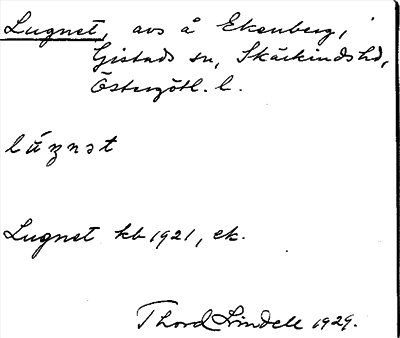 Lugnet, avs å Ekenberg,
Gistads sn, Skärkinds hd,
Östergötl. l.
lúŋnət
Lugnet kb 1921, ek.
Thord Lindell 1929.